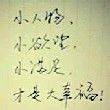 小人物,
小欲望,
小满足,
才是大幸福。